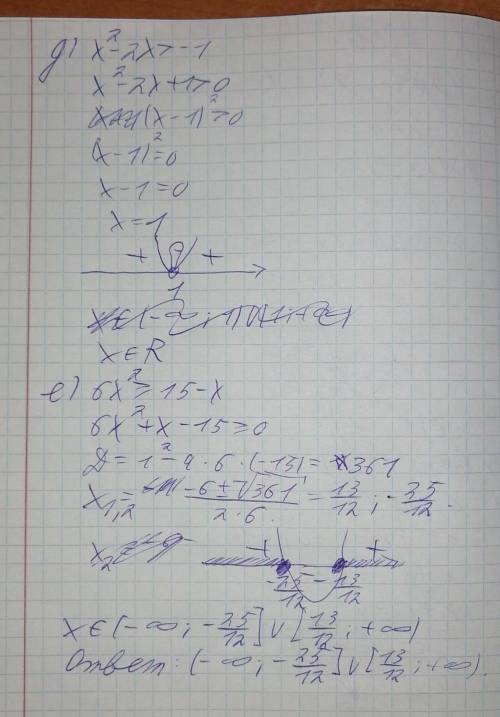 д) x²-2x>-1
x²-2x+1>0
(x-1)²>0
(x-1)²=0
x-1=0
x=1
+ +
1
x∈R
е) 6x²≥15-x
6x²+x-15≥0
D=1²-4·6·(-15)=361
x₁,₂= (-6±√361)/(2·6) = 13/12; -25/12.
x₂
+ +
-25/12 -13/12
x∈(-∞; -25/12]∪[13/12; +∞)
Ответ: (-∞; -25/12]∪[13/12; +∞).